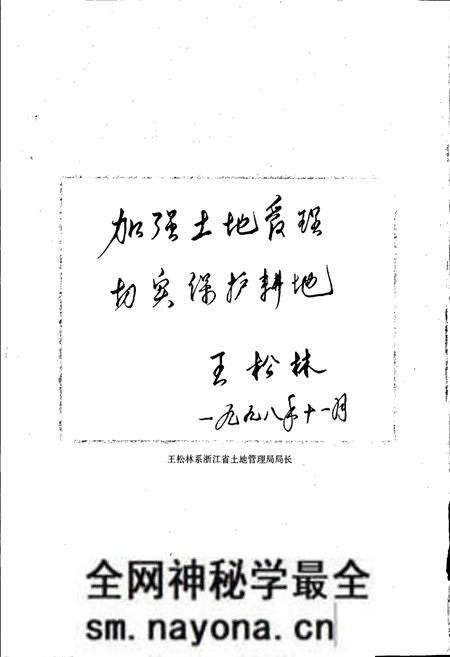 加强土地管理
切实保护耕地
王松林
一九九八年十一月
王松林系浙江省土地管理局局长
全网神秘学最全
sm.nayona.cn